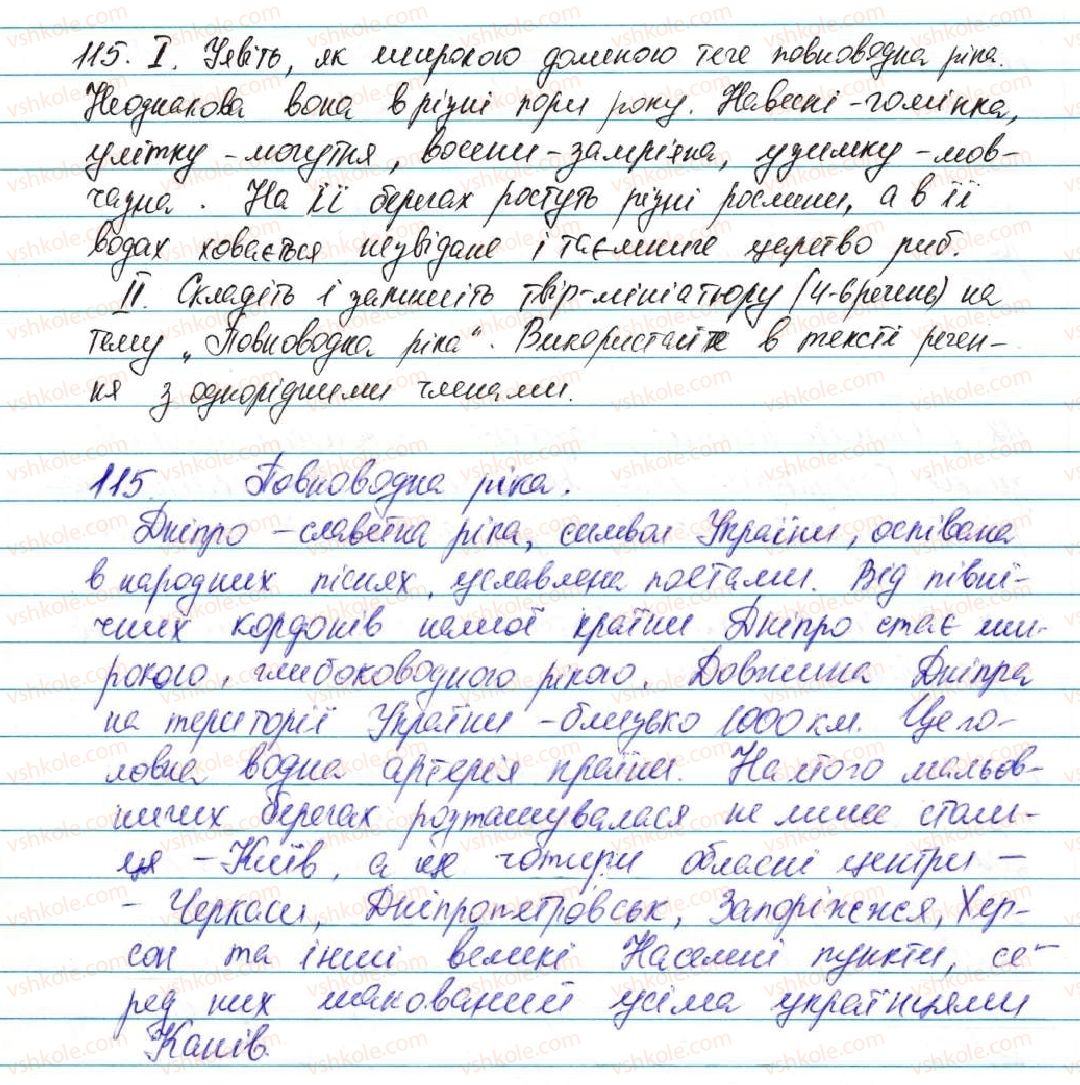 115. I. Уявіть, як широкою долиною тече повноводна ріка.
Неоднакова вона в різні пори року. Навесні - гомінка,
улітку - могутня, восени - замріяна, узимку - мов-
чазна. На її берегах ростуть різні рослини, а в її
водах ховається незвідане і таємниче царство риб.
II. Складіть і запишіть твір-мініатюру (4-6 речень) на
тему „Повноводна ріка“. Використайте в тексті речен-
ня з однорідними членами.
115. Повноводна ріка.
Дніпро - славетна ріка, символ України, оспівана
в народних піснях, уславлена поетами. Від півні-
чних кордонів нашої країни Дніпро стає ши-
рокою, глибоководною рікою. Довжина Дніпра
на території України - близько 1000 км. Це го-
ловна водна артерія країни. На його мальов-
ничих берегах розташувалася не лише столи-
ця - Київ, а ще чотири обласні центри -
- Черкаси, Дніпропетровськ, Запоріжжя, Хер-
сон та інші великі населені пункти, се-
ред них шанований усіма українцями
Канів.